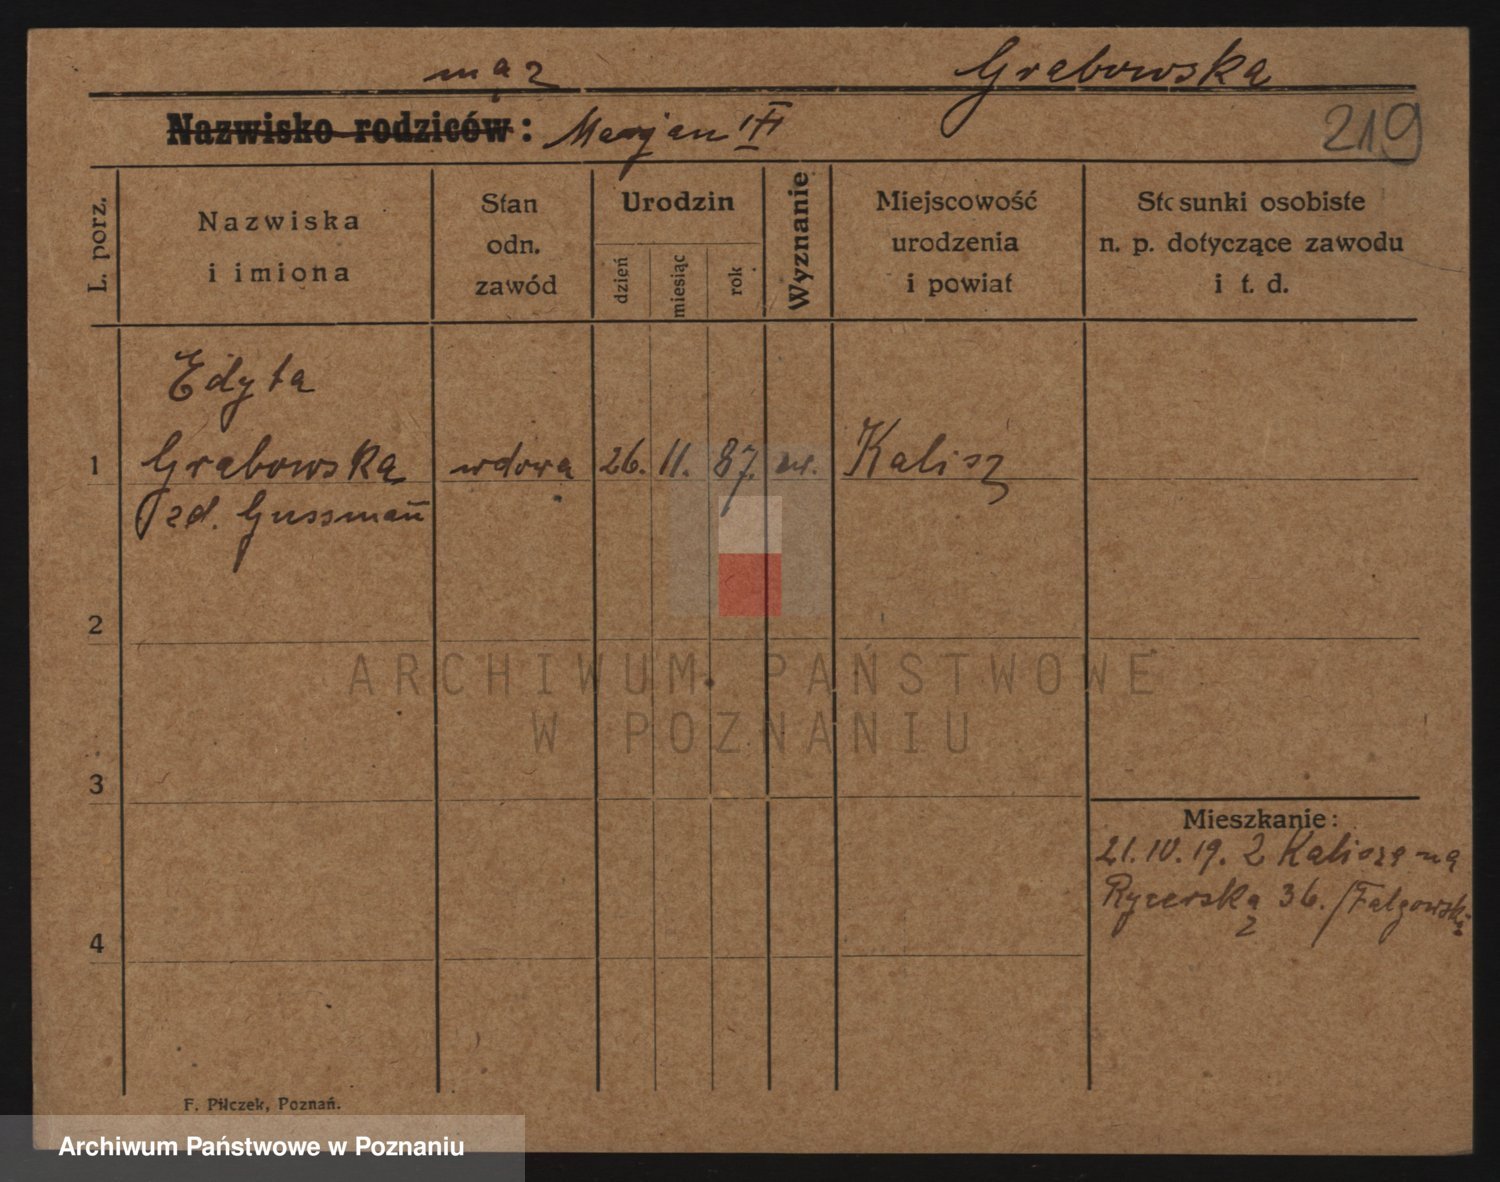 mąż
Grabowska
219
Nazwisko rodziców: Marjan
L. porz.
Nazwiska
i imiona
Stan
odn.
zawód
Urodzin
dzień
miesiąc
rok
Wyznanie
Miejscowość
urodzenia
i powiat
Stosunki osobiste
n. p. dotyczące zawodu
i t. d.
Edyta
1 Grabowska wdowa 26. 11. 87. Kalisz
zd. Gussmañ
2
ARCHIWUM PAŃSTWOWE
W POZNANIU
3
Mieszkanie:
21. IV. 19. Z Kalisza na
Rycerską 36. /Falgowski
4
F. Pilczek, Poznań.
Archiwum Państwowe w Poznaniu